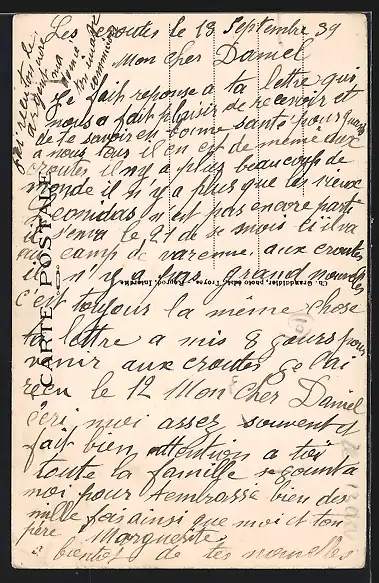 Les croutes le 18 Septembre 39
Mon cher Daniel
Je fait reponse a ta lettre qui
nous a fait plaisir de recevoir et
de te savoir en bonne santé pour quand
a nous tous il en est de même aux
croutes il n'y a plus beaucoup de
monde il n'y a plus que les vieux
n'est pas encore parti
il s'enva le 21 de se mois ci il va
au camp de varenne, aux croutes
il n'y a pas grand nouvelles
c'est toujour la même chose
ta lettre a mis 8 jours pour
venir aux croutes je l'ai
reçu le 12 Mon cher Daniel
écri moi assez souvent
fait bien attention a toi
toute la famille se joint a
moi pour t'embrassé bien des
mille fois ainsi que moi et ton
père Marguerite.
a bientôt de tes nouvelles
CARTE POSTALE
Ch. Grandidier, photo édit., Troyes, Reprod. Interdite